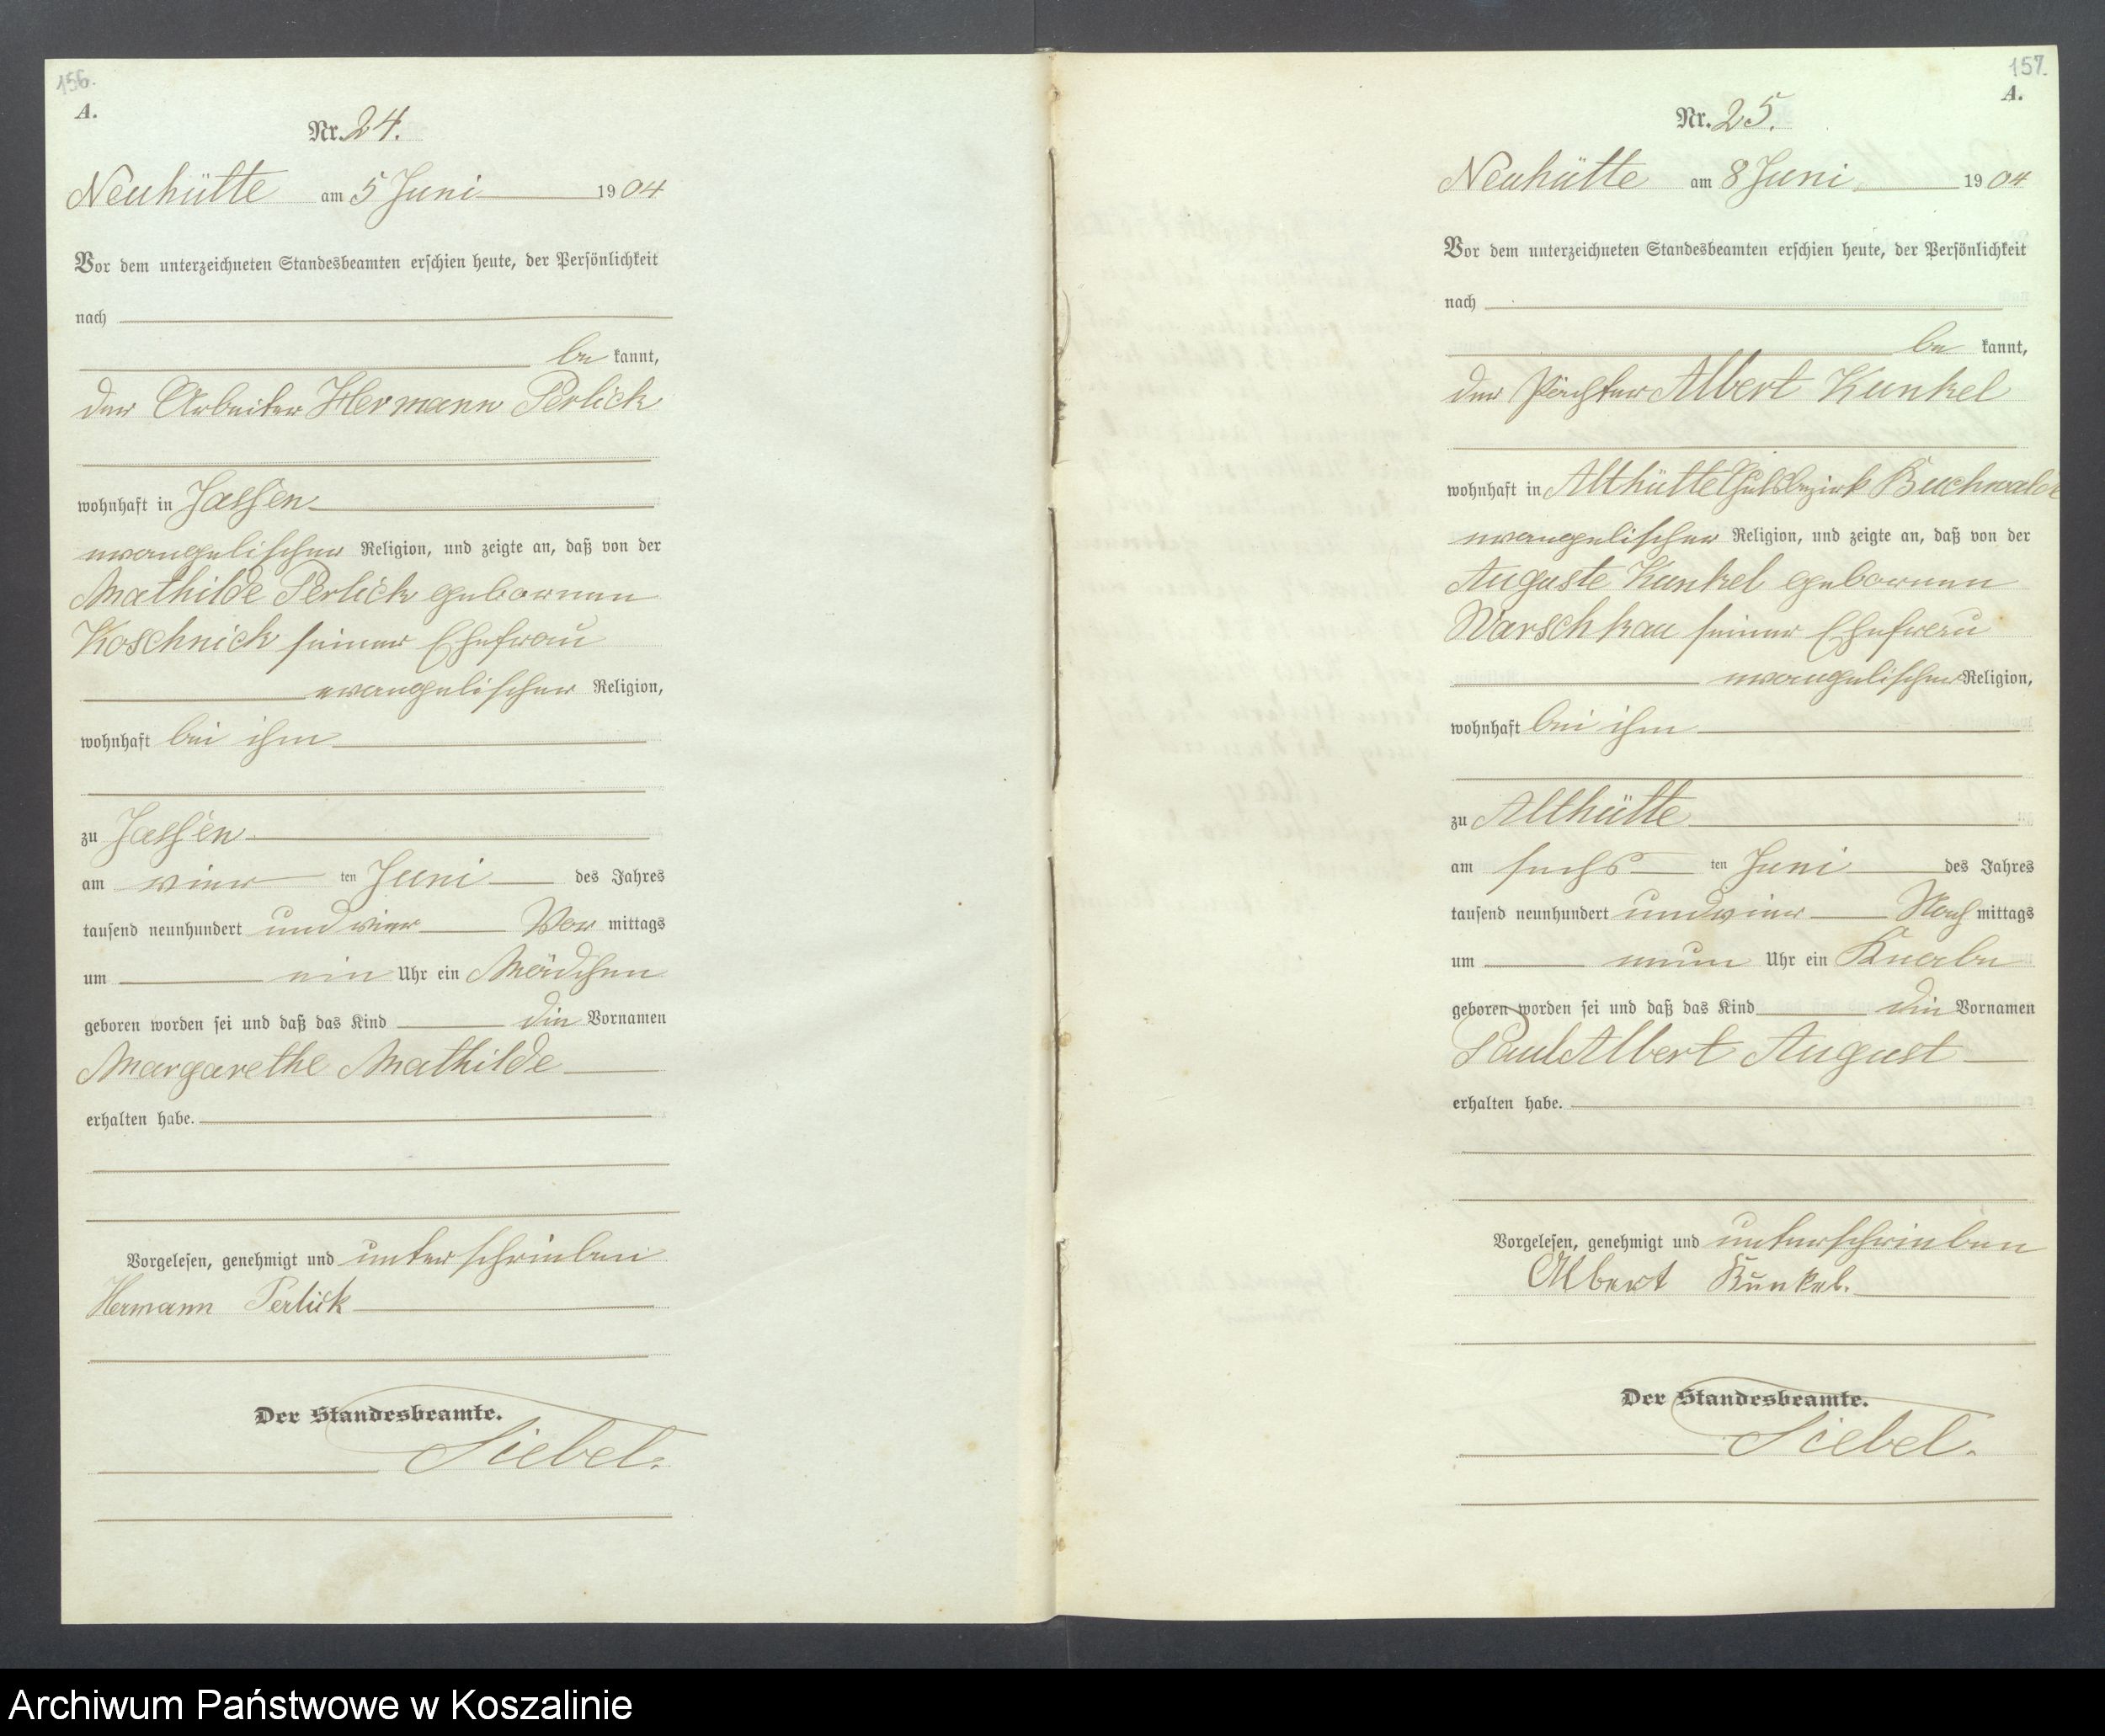 156.
A.
Nr. 24.
Neuhütte am 5 Juni 1904
Vor dem unterzeichneten Standesbeamten erschien heute, der Persönlichkeit
nach
be kannt,
der Arbeiter Hermann Perlick
wohnhaft in Jassen
evangelischer Religion, und zeigte an, daß von der
Mathilde Perlick geborenen
Koschnick seiner Ehefrau
evangelischer Religion,
wohnhaft bei ihm
zu Jassen
am vier ten Juni des Jahres
tausend neunhundert und vier Vor mittags
um ein Uhr ein Mädchen
geboren worden sei und daß das Kind die Vornamen
Margarethe Mathilde
erhalten habe.
Vorgelesen, genehmigt und unterschrieben
Hermann Perlick
Der Standesbeamte.
Siebel.
157.
A.
Nr. 25.
Neuhütte am 8 Juni 1904
Vor dem unterzeichneten Standesbeamten erschien heute, der Persönlichkeit
nach
be kannt,
der Pächter Albert Kunkel
wohnhaft in Althütte Gutsbezirk Buchwalde
evangelischer Religion, und zeigte an, daß von der
Auguste Kunkel geborenen
Warschkau seiner Ehefrau
evangelischer Religion,
wohnhaft bei ihm
zu Althütte
am sechs ten Juni des Jahres
tausend neunhundert und vier Nach mittags
um neun Uhr ein Knabe
geboren worden sei und daß das Kind die Vornamen
Paul Albert August
erhalten habe.
Vorgelesen, genehmigt und unterschrieben
Albert Kunkel.
Der Standesbeamte.
Siebel.
Archiwum Państwowe w Koszalinie